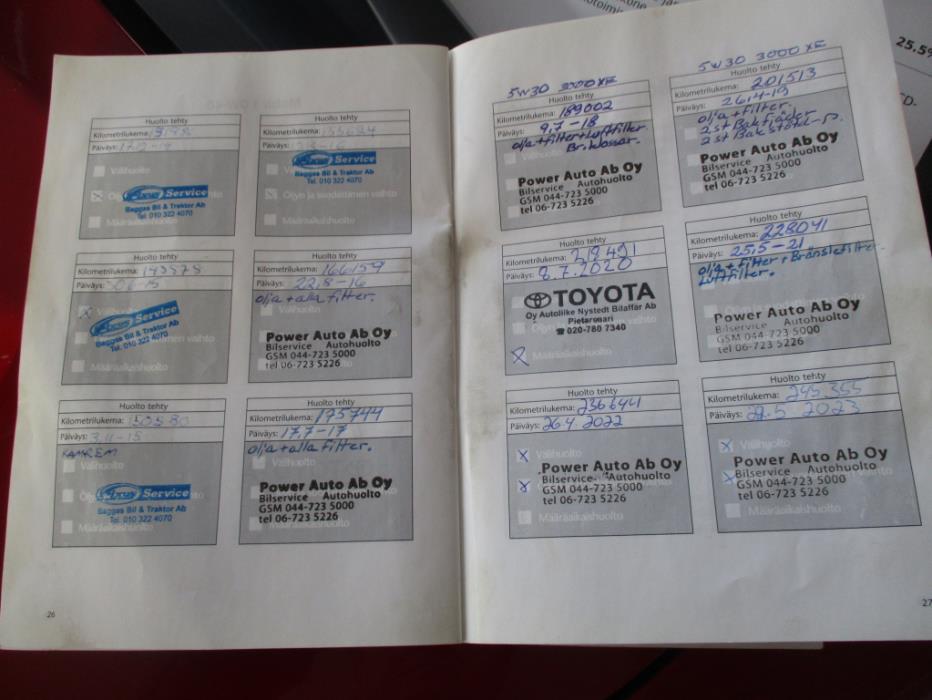 25.5%
CD.
Huolto tehty
Kilometrilukema:
Päiväys:
Välihuolto
Service
Baggas Bil & Traktor Ab
Tel. 010 322 4070
Määräaikaishuolto
Huolto tehty
Kilometrilukema:
Päiväys:
Service
Baggas Bil & Traktor Ab
Tel. 010 322 4070
Öljyn ja suodattimen vaihto
Määräaikaishuolto
Huolto tehty
Kilometrilukema:
Päiväys:
Service
Baggas Bil & Traktor Ab
Tel. 010 322 4070
Määräaikaishuolto
Huolto tehty
Kilometrilukema: 166159
Päiväys: 22,8-16
olja + alla filter.
Välihuolto
Power Auto Ab Oy
Bilservice Autohuolto
GSM 044-723 5000
tel 06-723 5226
Huolto tehty
Kilometrilukema: 150580
Päiväys: 3.11-15
KAMREM
Välihuolto
Service
Baggas Bil & Traktor Ab
Tel. 010 322 4070
Määräaikaishuolto
Huolto tehty
Kilometrilukema: 175744
Päiväys: 17,7-17
olja + alla filter.
Välihuolto
Power Auto Ab Oy
Bilservice Autohuolto
GSM 044-723 5000
tel 06-723 5226
Määräaikaishuolto
26
5W30 3000 XE
Huolto tehty
Kilometrilukema: 189002
Päiväys: 9,7-18
olja + filter + luftfilter
Br.klossar.
Power Auto Ab Oy
Bilservice Autohuolto
GSM 044-723 5000
tel 06-723 5226
5W30 3000 XE
Huolto tehty
Kilometrilukema: 201513
Päiväys: 26,4-19
olja + filter.
2 st Bakfjäder
Power Auto Ab Oy
Bilservice Autohuolto
GSM 044-723 5000
tel 06-723 5226
Huolto tehty
Kilometrilukema: 219491
Päiväys: 2.7.2020
TOYOTA
Oy Autoliike Nystedt Bilaffär Ab
Pietarsaari
☎ 020-780 7340
Määräaikaishuolto
Huolto tehty
Kilometrilukema: 228041
Päiväys: 25,5-21
olja + filter + Bränslefilter.
Luftfilter.
Power Auto Ab Oy
Bilservice Autohuolto
GSM 044-723 5000
tel 06-723 5226
Huolto tehty
Kilometrilukema: 236641
Päiväys: 26.4.2022
Välihuolto
Power Auto Ab Oy
Bilservice Autohuolto
GSM 044-723 5000
tel 06-723 5226
Määräaikaishuolto
Huolto tehty
Kilometrilukema: 245.355
Päiväys: 22.5 2023
Välihuolto
Power Auto Ab Oy
Bilservice Autohuolto
GSM 044-723 5000
tel 06-723 5226
Määräaikaishuolto
27